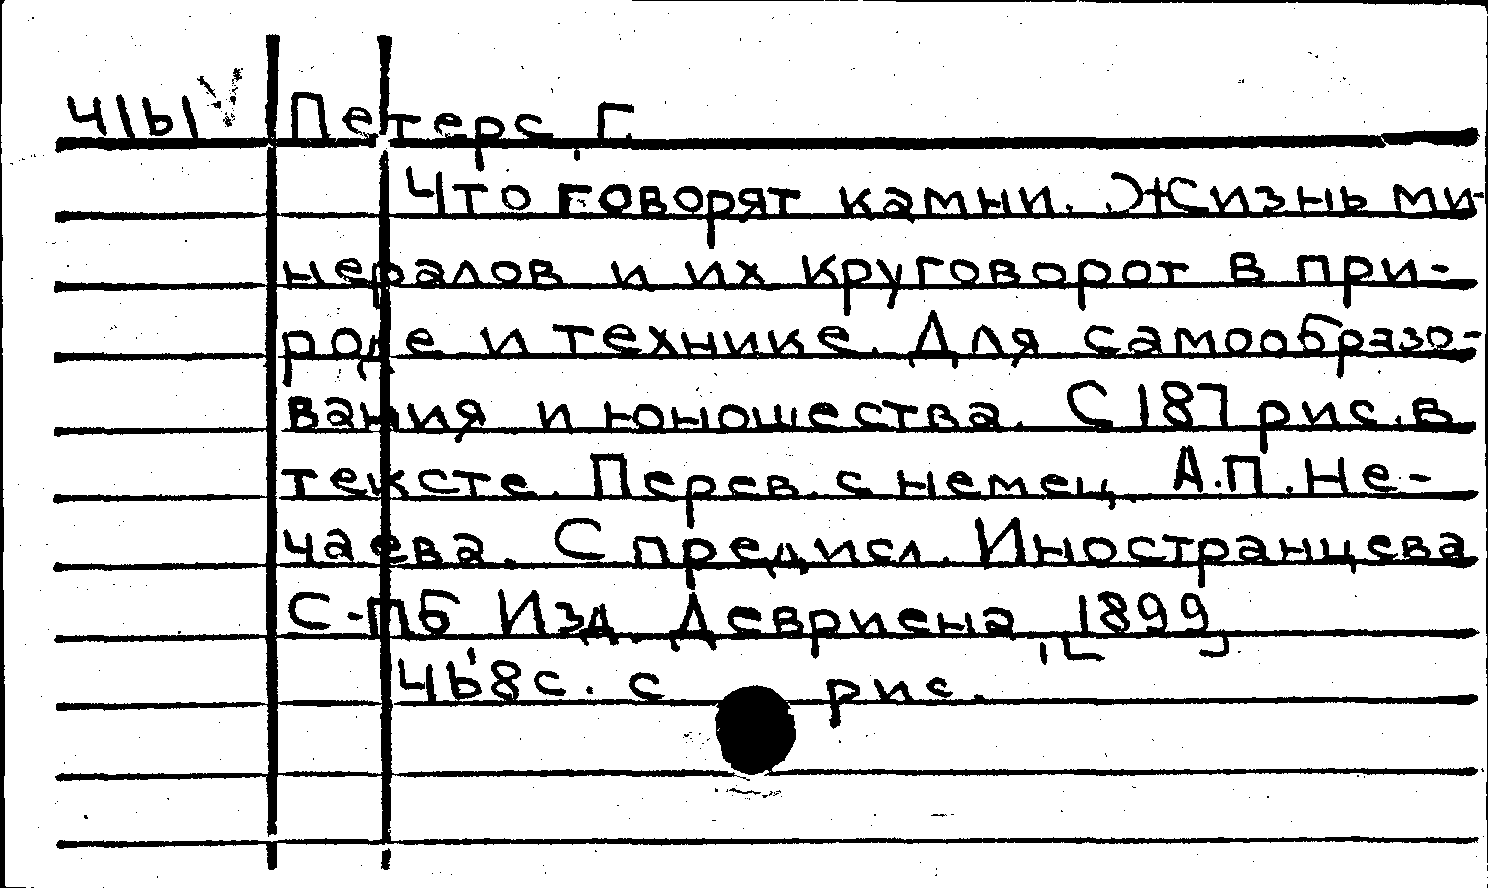 4161 V Петерс, Г.
Что говорят камни. Жизнь ми-
нералов и их круговорот в при-
роде и технике. Для самообразо-
вания и юношества. С 187 рис. в
тексте. Перев. с немец. А.П. Не-
чаева. С предисл. Иностранцева
С-ПБ Изд. Девриена, [1899]
468 с. с рис.